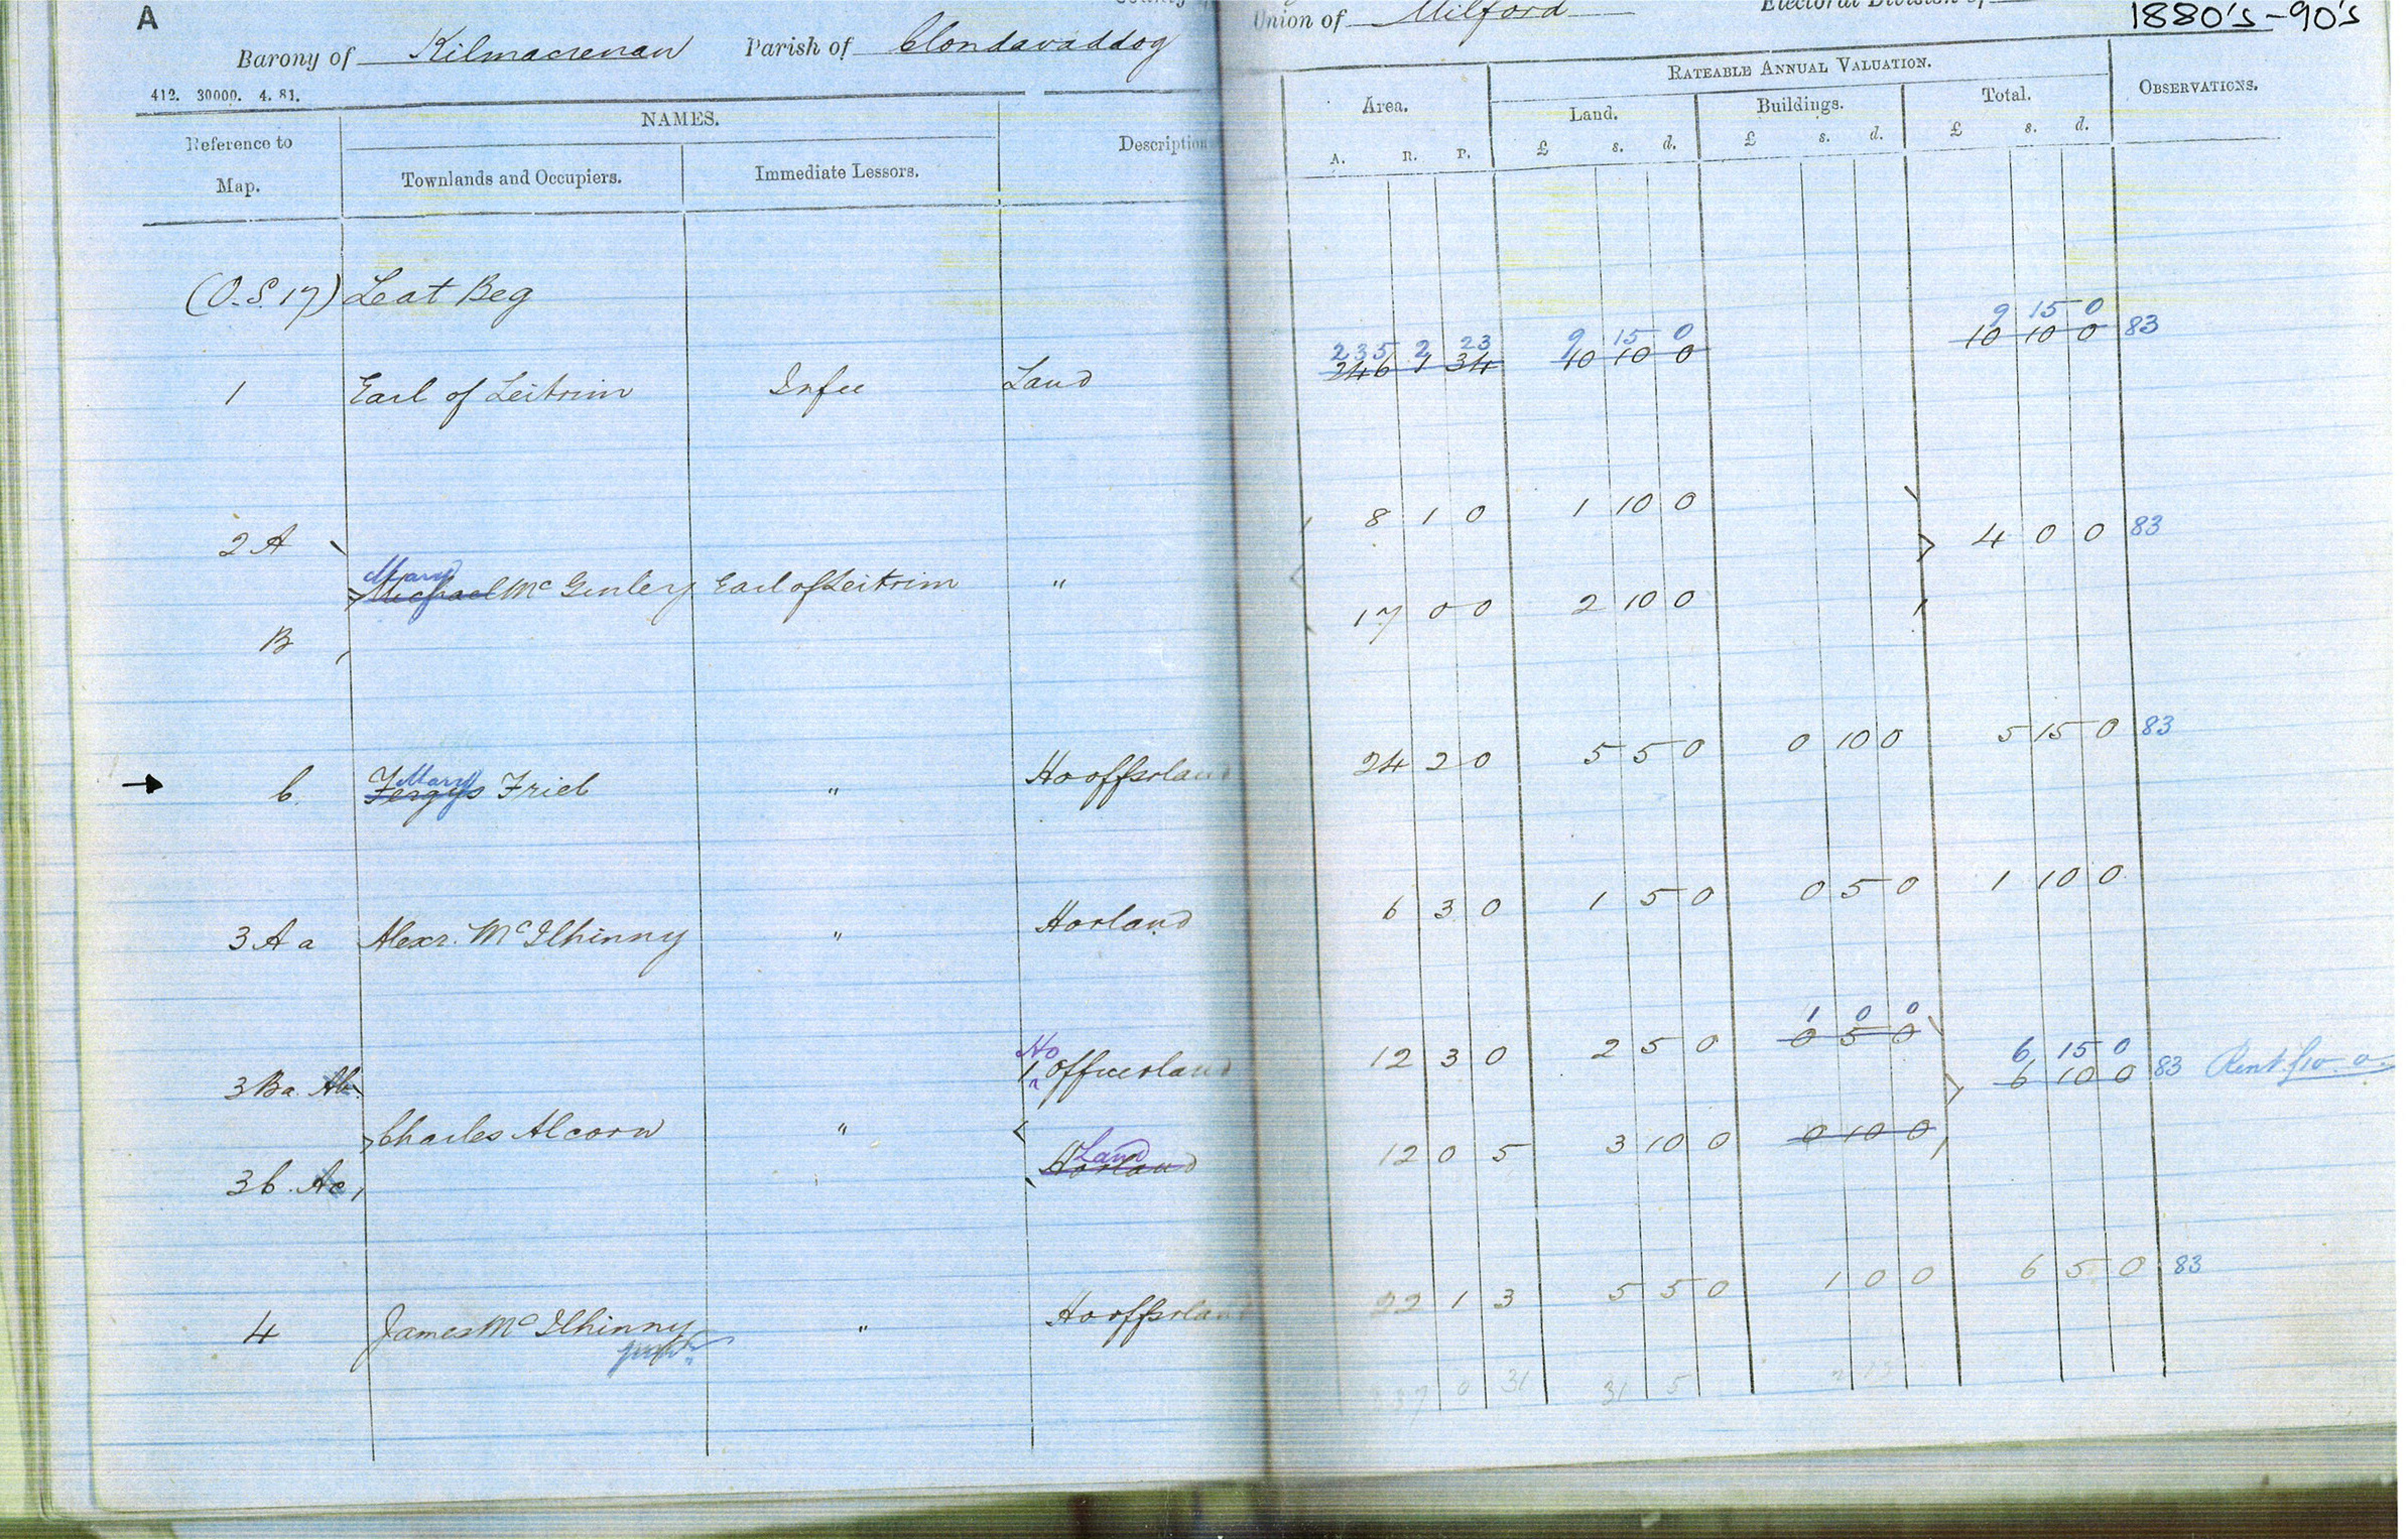 A
1880's-90's
Barony of Kilmacrenan Parish of Clondavaddog Union of Milford Electoral Division of
412. 30000. 4. 81.
Reference to Map. NAMES. Description Area. RATEABLE ANNUAL VALUATION. OBSERVATIONS.
Townlands and Occupiers. Immediate Lessors. Land. Buildings. Total.
A. R. P. £ s. d. £ s. d. £ s. d.
(O.S 17) Leat Beg
235 2 23 9 15 0 9 15 0
1 Earl of Leitrim Infee Land 246 1 34 10 10 0 10 10 0 83
2 A 8 1 0 1 10 0
Mary
Michael McGinley Earl of Leitrim " 4 0 0 83
B 17 0 0 2 10 0
Mary
→ b. Fergus Friel " Hooffsoland 24 2 0 5 5 0 0 10 0 5 15 0 83
3 A a Alexr. McIlhinny " Hooland 6 3 0 1 5 0 0 5 0 1 10 0
Ho 1 0 0 6 15 0
3 Ba Ab Officesland 12 3 0 2 5 0 0 5 0 6 10 0 83 Rent £10.0
Charles Alcorn "
Land
3 b. Ac Hooland 12 0 5 3 10 0 0 10 0
4 James McIlhinny " Hooffsoland 22 1 3 5 5 0 1 0 0 6 5 0 83
0 31 31 5